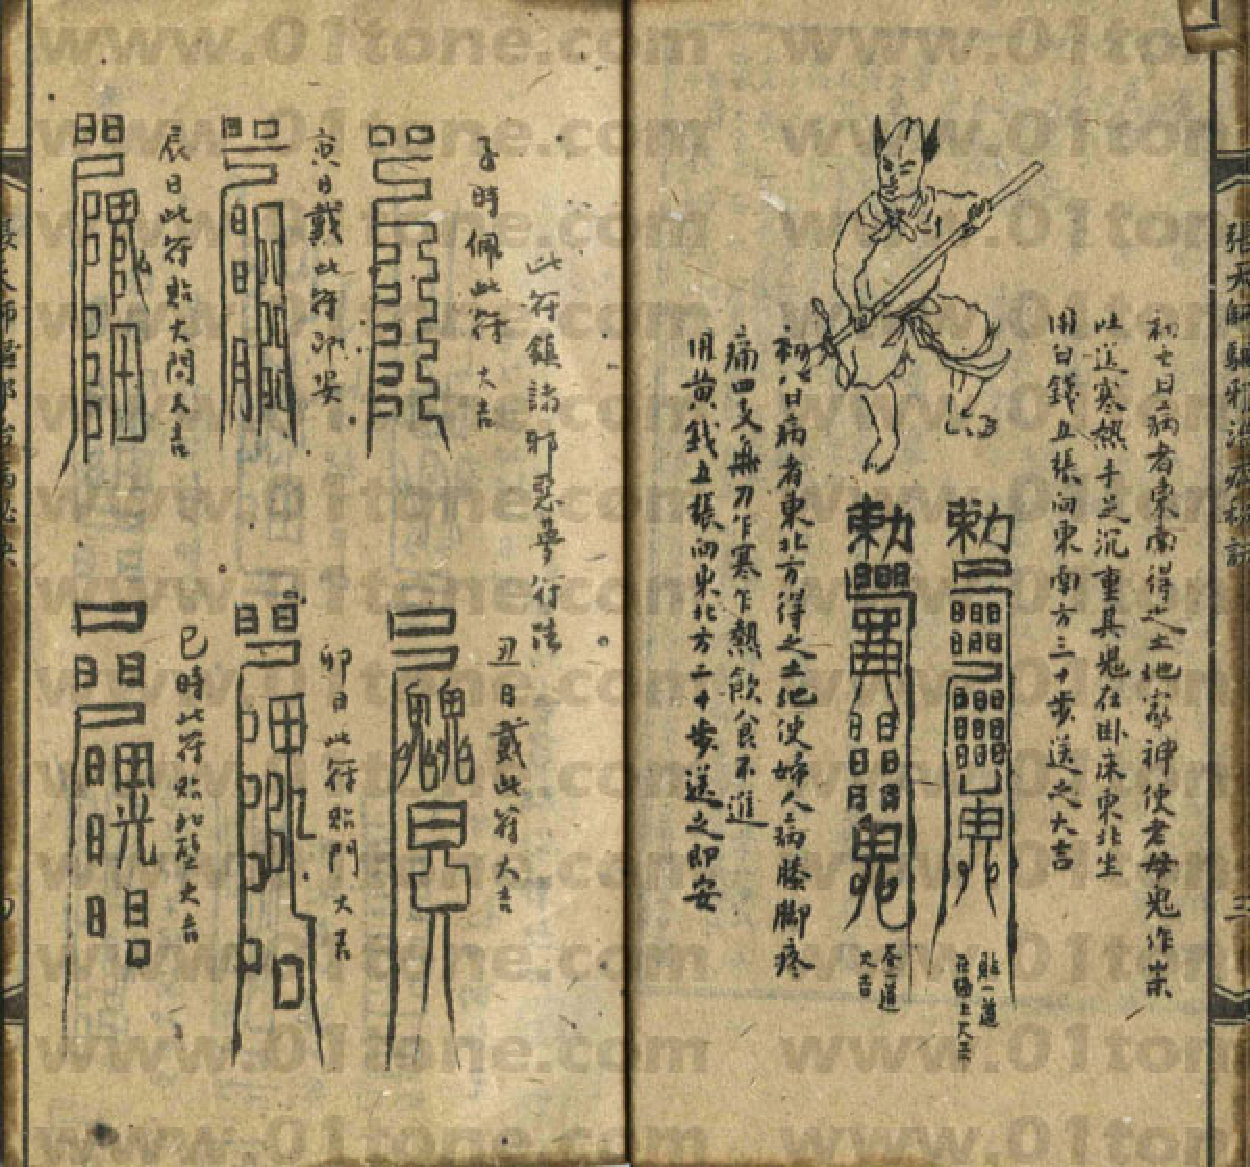 初七日病者東南得之土地家神使老母鬼作祟
吐逆寒熱手足沉重其鬼在卧床東北坐
用白錢五張向東南方三十步送之大吉
敕
貼一道
敕
吞一道
大吉
初八日病者東北方得之土地使婦人病膝脚疼
痛四支無力乍寒乍熱飲食不進
用黄錢五張向東北方二十步送之即安
三
此符鎮諸邪惡夢符法
子時佩此符 大吉
丑日戴此符大吉
寅日戴此符即安
卯日此符貼門大吉
辰日此符貼大門大吉
巳時此符貼北壁大吉
www.01tone.com